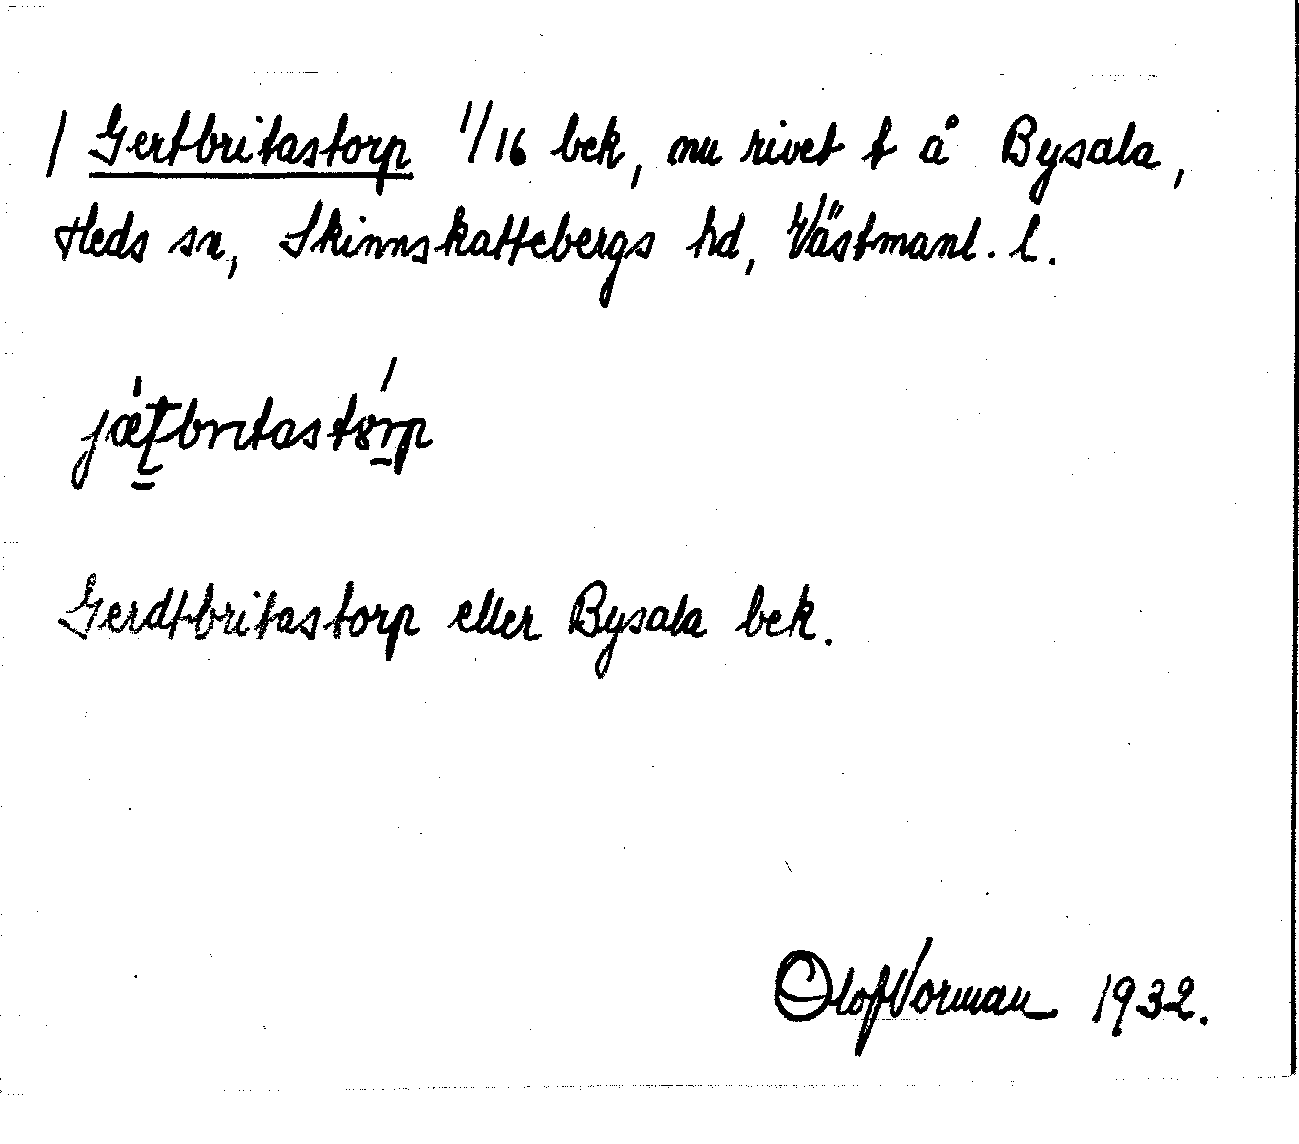 / Gertbritastorp 1/16 bek, nu rivet t å Bysala,
Heds sn, Skinnskattebergs hd, Västmanl. l.
jǽʈbrɩtastórp
Gerdtbritastorp eller Bysala bek.
Olof Vorman 1932.